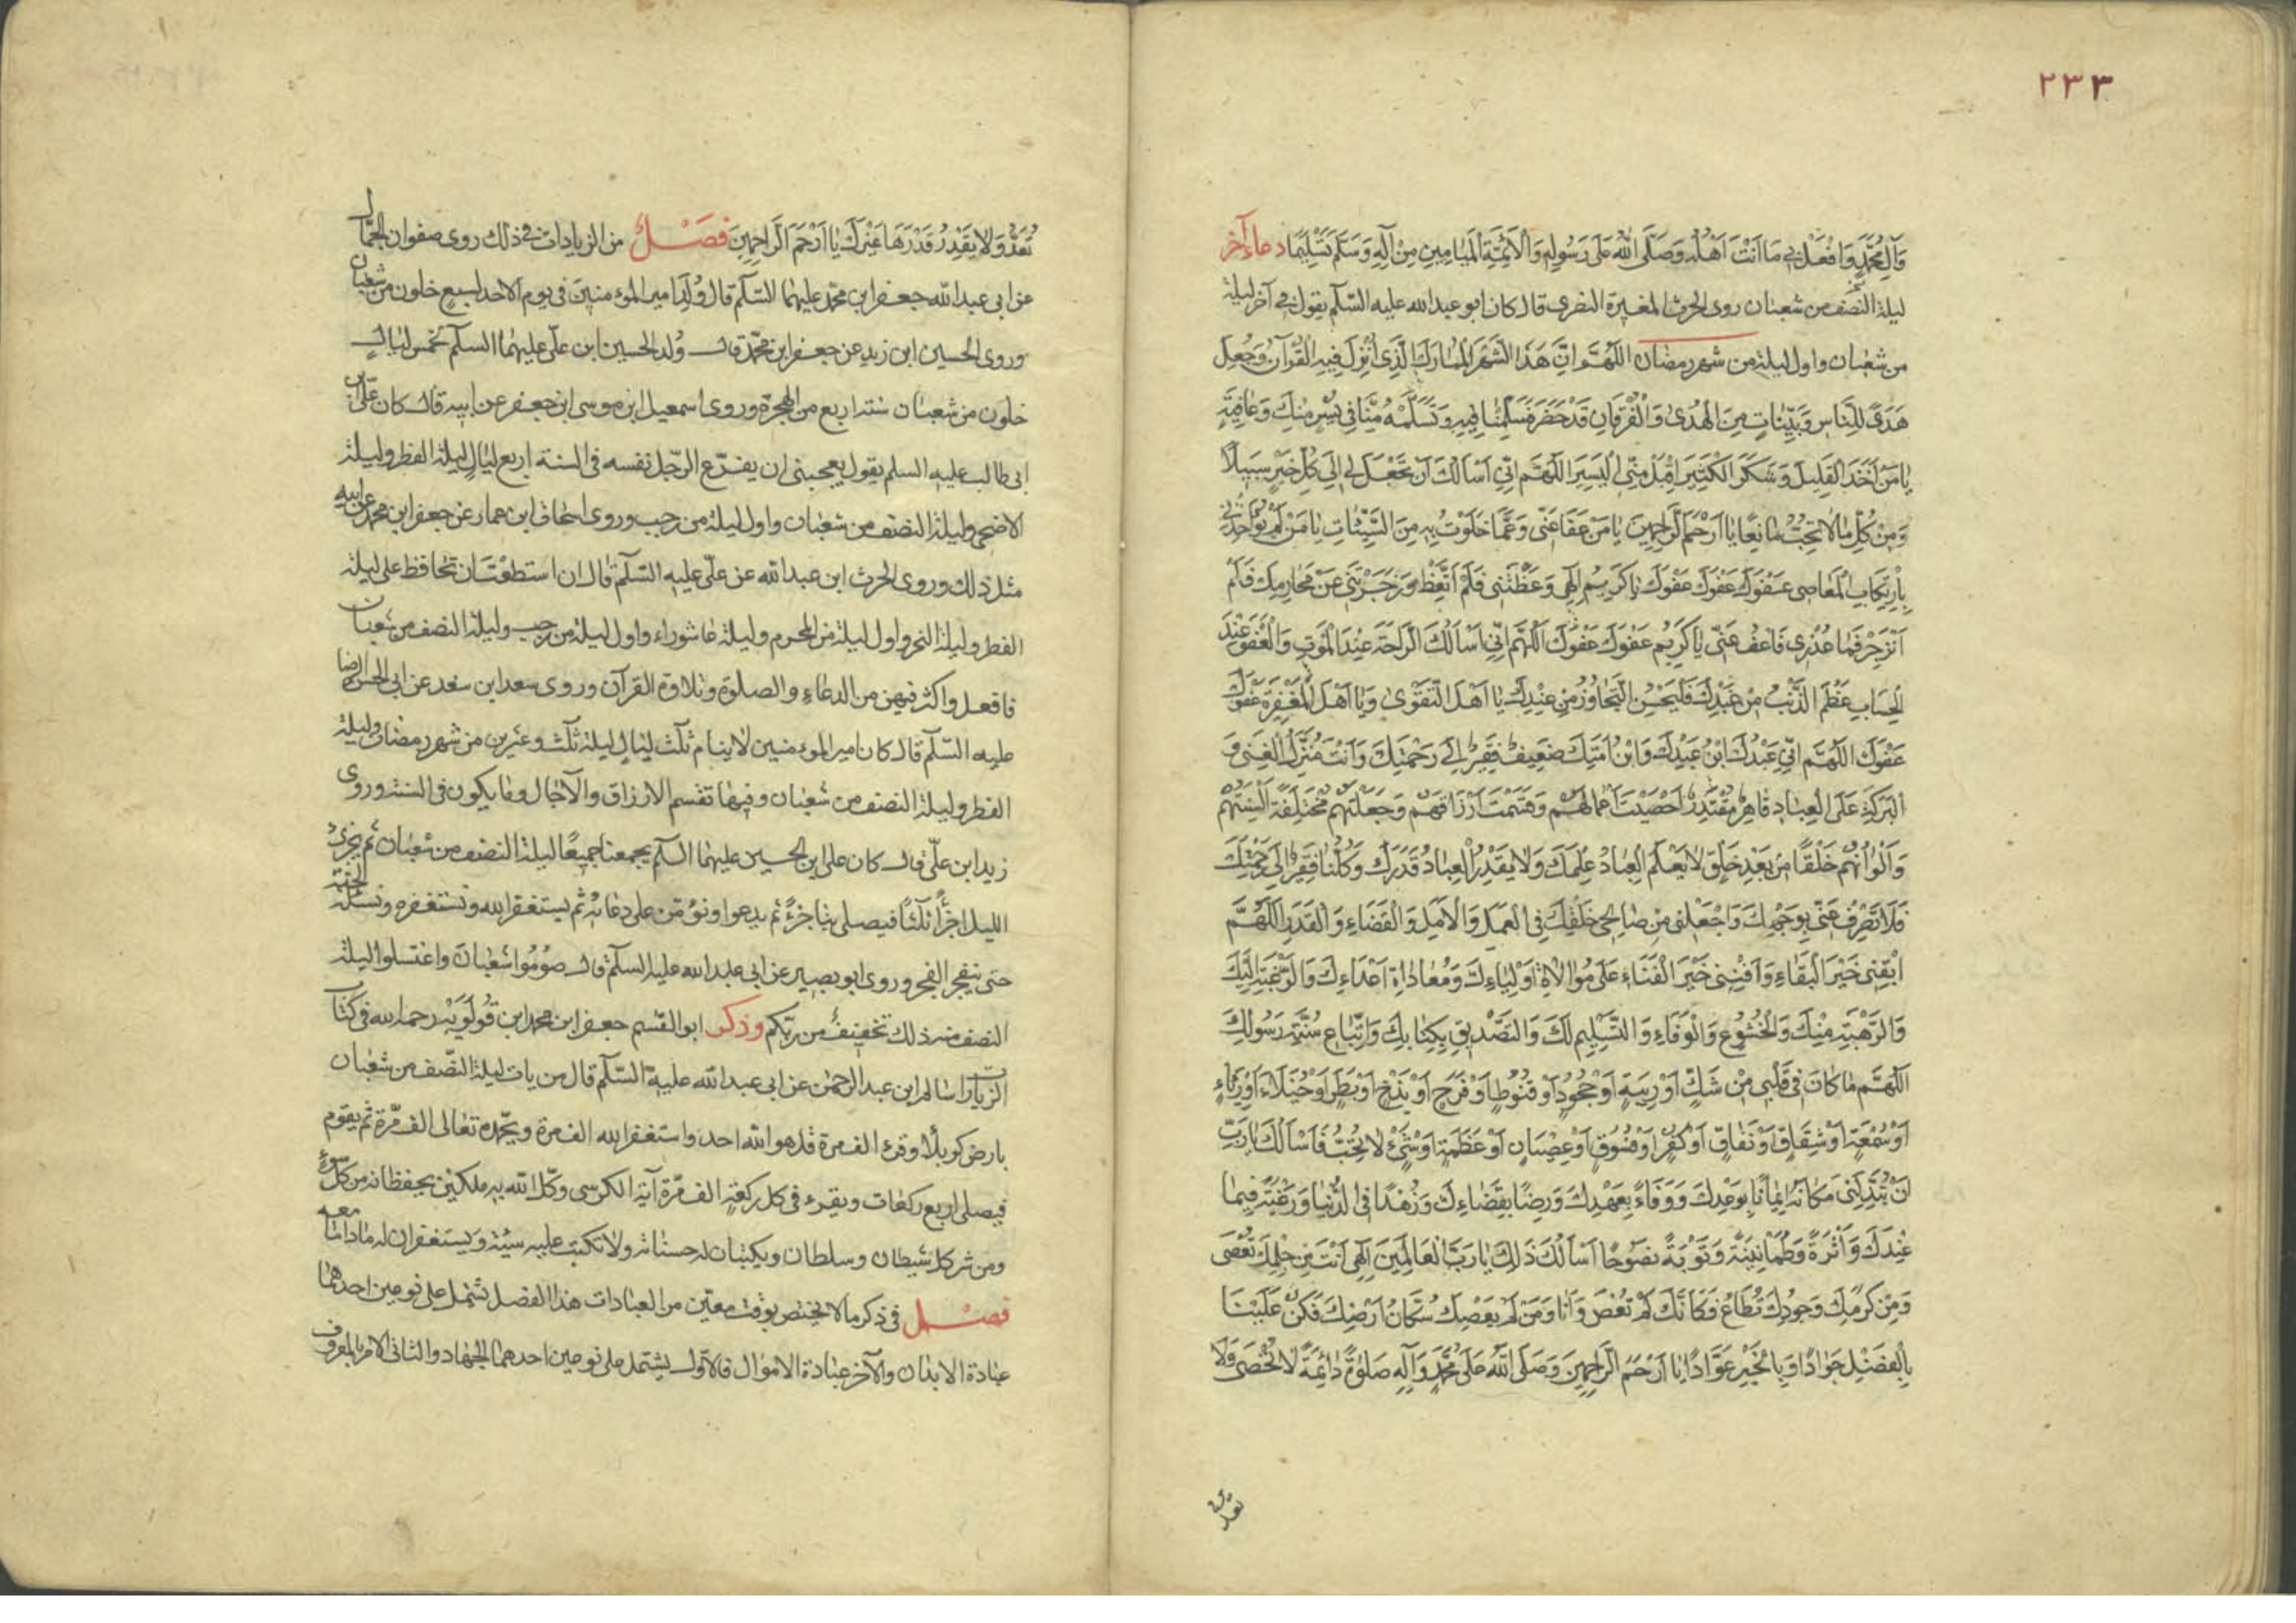 ٢٣٣
وَآلِ مُحَمَّدٍ وَافْعَلْ بِي مَا اَنْتَ اَهْلُهُ وَصَلَّى اللهُ عَلَى رَسُولِهِ وَالْاَئِمَّةِ الْمَيَامِينِ مِنْ آلِهِ وَسَلَّمَ تَسْلِيمًا دعاء آخر
ليلة النصف من شعبان روى الحرث المغيرة النضرى قال كان ابو عبدالله عليه السّلم يقول في آخر ليلة
من شعبان واول ليلة من شهر رمضان اللّهُمَّ اِنَّ هَذَا الشَّهْرَ الْمُبَارَكَ الَّذِى اُنْزِلَ فِيهِ الْقُرْآنُ وَجُعِلَ
هُدًى لِلنَّاسِ وَبَيِّنَاتٍ مِنَ الْهُدَى وَالْفُرْقَانِ قَدْ حَضَرَ فَسَلِّمْنَا فِيهِ وَتَسَلَّمْهُ مِنَّا فِي يُسْرٍ مِنْكَ وَعَافِيَةٍ
يَا مَنْ اَخَذَ الْقَلِيلَ وَشَكَرَ الْكَثِيرَ اقْبَلْ مِنِّى الْيَسِيرَ اللّهُمَّ اِنِّي اَسْاَلُكَ اَنْ تَجْعَلَ لِي اِلَى كُلِّ خَيْرٍ سَبِيلًا
وَمِنْ كُلِّ مَا لَا تُحِبُّ مَانِعًا يَا اَرْحَمَ الرَّاحِمِينَ يَا مَنْ عَفَا عَنِّى وَعَمَّا خَلَوْتُ بِهِ مِنَ السَّيِّئَاتِ يَا مَنْ لَمْ يُؤَاخِذْنِي
بِاِرْتِكَابِ الْمَعَاصِى عَفْوَكَ عَفْوَكَ عَفْوَكَ يَا كَرِيمُ اِلَهِى وَعَظْتَنِى فَلَمْ اَتَّعِظْ وَزَجَرْتَنِى عَنْ مَحَارِمِكَ فَلَمْ
اَنْزَجِرْ فَمَا عُذْرِى فَاعْفُ عَنِّى يَا كَرِيمُ عَفْوَكَ عَفْوَكَ اللّهُمَّ اِنِّي اَسْاَلُكَ الرَّاحَةَ عِنْدَ الْمَوْتِ وَالْعَفْوَ عِنْدَ
الْحِسَابِ عَظُمَ الذَّنْبُ مِنْ عَبْدِكَ فَلْيَحْسُنِ التَّجَاوُزُ مِنْ عِنْدِكَ يَا اَهْلَ التَّقْوَى وَيَا اَهْلَ الْمَغْفِرَةِ عَفْوَكَ
عَفْوَكَ اللّهُمَّ اِنِّي عَبْدُكَ ابْنُ عَبْدِكَ وَابْنُ اَمَتِكَ ضَعِيفٌ فَقِيرٌ اِلَى رَحْمَتِكَ وَاَنْتَ مُنْزِلُ الْغِنَى وَ
الْبَرَكَةِ عَلَى الْعِبَادِ قَاهِرٌ مُقْتَدِرٌ اَحْصَيْتَ اَعْمَالَهُمْ وَقَسَمْتَ اَرْزَاقَهُمْ وَجَعَلْتَهُمْ مُخْتَلِفَةً اَلْسِنَتُهُمْ
وَاَلْوَانُهُمْ خَلْقًا مِنْ بَعْدِ خَلْقٍ لَا يَعْلَمُ الْعِبَادُ عِلْمَكَ وَلَا يَقْدِرُ الْعِبَادُ قَدْرَكَ وَكُلُّنَا فَقِيرٌ اِلَى رَحْمَتِكَ
فَلَا تَصْرِفْ عَنِّى بِوَجْهِكَ وَاجْعَلْنِى مِنْ صَالِحِى خَلْقِكَ فِى الْعَمَلِ وَالْاَمَلِ وَالْقَضَاءِ وَالْقَدَرِ اللّهُمَّ
ابْقِنِى خَيْرَ الْبَقَاءِ وَاَفْنِنِى خَيْرَ الْفَنَاءِ عَلَى مُوَالَاةِ اَوْلِيَاءِكَ وَمُعَادَاةِ اَعْدَاءِكَ وَالرَّغْبَةِ اِلَيْكَ
وَالرَّهْبَةِ مِنْكَ وَالْخُشُوعِ وَالْوَفَاءِ وَالتَّسْلِيمِ لَكَ وَالتَّصْدِيقِ بِكِتَابِكَ وَاتِّبَاعِ سُنَّةِ رَسُولِكَ
اللّهُمَّ مَا كَانَ فِى قَلْبِى مِنْ شَكٍّ اَوْ رِيبَةٍ اَوْ جُحُودٍ اَوْ قُنُوطٍ اَوْ فَرَحٍ اَوْ بَذَخٍ اَوْ بَطَرٍ اَوْ خُيَلَاءَ اَوْ رِيَاءٍ
اَوْ سُمْعَةٍ اَوْ شِقَاقٍ اَوْ نِفَاقٍ اَوْ كُفْرٍ اَوْ فُسُوقٍ اَوْ عِصْيَانٍ اَوْ عَظَمَةٍ اَوْ شَىْءٍ لَا تُحِبُّ فَاَسْاَلُكَ يَا رَبِّ
اَنْ تُبَدِّلَنِى مَكَانَهُ اِيمَانًا بِوَعْدِكَ وَوَفَاءً بِعَهْدِكَ وَرِضًا بِقَضَاءِكَ وَزُهْدًا فِى الدُّنْيَا وَرَغْبَةً فِيمَا
عِنْدَكَ وَاَثَرَةً وَطُمَانِينَةً وَتَوْبَةً نَصُوحًا اَسْاَلُكَ ذَلِكَ يَا رَبَّ الْعَالَمِينَ اِلَهِى اَنْتَ مِنْ حِلْمِكَ تُعْصَى
وَمِنْ كَرَمِكَ وَجُودِكَ تُطَاعُ فَكَاَنَّكَ لَمْ تُعْصَ وَاَنَا وَمَنْ لَمْ يَعْصِكَ سُكَّانُ اَرْضِكَ فَكُنْ عَلَيْنَا
بِالْفَضْلِ جَوَادًا وَبِالْخَيْرِ عَوَّادًا يَا اَرْحَمَ الرَّاحِمِينَ وَصَلَّى اللهُ عَلَى مُحَمَّدٍ وَآلِهِ صَلَوةً دَائِمَةً لَا تُحْصَى وَلَا
تعد
تُعَدُّ وَلَا يَقْدِرُ قَدْرَهَا غَيْرُكَ يَا اَرْحَمَ الرَّاحِمِينَ فَصْلٌ من الزيادات في ذلك روى صفوان الجمّال
عن ابى عبدالله جعفر ابن محمّد عليهما السّلم قال وُلد امير المؤمنين فى يوم الاحد لسبع خلون من شعبان
وروى الحسين ابن زيد عن جعفر ابن محمّد قال وُلد الحسين ابن على عليهما السلم لخمس ليالٍ
خلون من شعبان سنة اربع من الهجرة وروى اسمعيل ابن موسى ابن جعفر عن ابيه قال كان علىّ ابن
ابى طالب عليه السلم يقول يعجبنى ان يفرّغ الرّجل نفسه فى السنة اربع ليالٍ ليلة الفطر وليلة
الاضحى وليلة النصف من شعبان واول ليلة من رجب وروى اسحاق ابن عمار عن جعفر ابن محمد عن ابيه
مثل ذلك وروى الحرث ابن عبدالله عن علىّ عليه السّلم قال ان استطعت ان تحافظ على ليلة
الفطر وليلة النحر واول ليلة من المحرم وليلة عاشوراء واول ليلة من رجب وليلة النصف من شعبان
فافعل واكثر فيهن من الدعاء والصلوة وتلاوة القرآن وروى سعد ابن سعد عن ابى الحسن الرضا
عليه السّلم قال كان امير المؤمنين لا ينام ثلث ليالٍ ليلة ثلث وعشرين من شهر رمضان وليلة
الفطر وليلة النصف من شعبان وفيها تقسم الارزاق والآجال وما يكون فى السنة وروى
زيد ابن علىّ قال كان على ابن الحسين عليهما السلم يجمعنا جميعًا ليلة النصف من شعبان ثم يجزىء
الليل اجزأً ثلثًا فيصلى بنا جزءً ثم يدعوا ونؤمّن على دعائه ثم يستغفر الله ونستغفره ونسئله الجنة
حتى ينفجر الفجر وروى ابو بصير عن ابى عبدالله عليه السلم قال صُومُوا شعبان واغتسلوا ليلة
النصف منه ذلك تخفيفٌ من ربّكم وذكر ابو القسم جعفر ابن محمد ابن قُولَوَيْه رحمه الله فى كتاب
الزيارات سالم ابن عبد الرحمن عن ابى عبدالله عليه السّلم قال من بات ليلة النّصف من شعبان
بارض كربلأ وقرء الف مرة قل هو الله احد واستغفر الله الف مرة ويحمّده تعالى الف مّرة ثم يقوم
فيصلى اربع ركعات ويقرء فى كل ركعةٍ الف مّرة آية الكرسى وكّل الله به ملكين يحفظانه من كلّ سوءٍ
ومن شر كل شيطان وسلطان ويكتبان له حسناته ولا تكتب عليه سيئة ويستغفران له ما داما معه
فصل فى ذكر ما لا يختص بوقت معيّن من العبادات هذا الفصل يشتمل على نوعين احدهما
عبادة الابدان والآخر عبادة الاموال فالاوّل يشتمل على نوعين احدهما الجهاد والثانى الامر بالمعروف